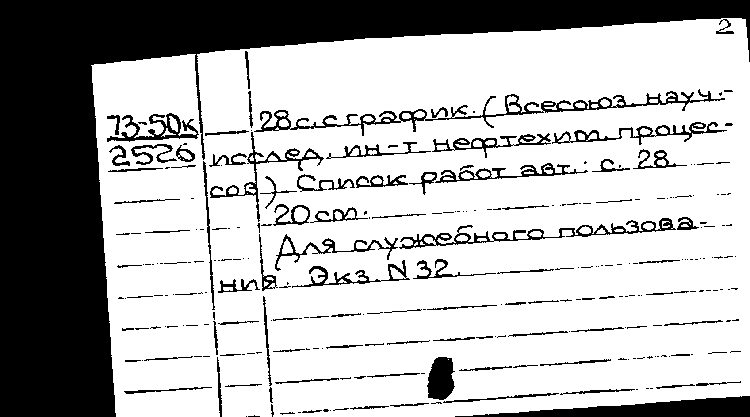 2
73-50к 28 с. с график. (Всесоюз. науч.-
2526 исслед. ин-т нефтехим. процес-
сов). Список работ авт.: с. 28.
20 cm.
Для служебного пользова-
ния. Экз. N 32.